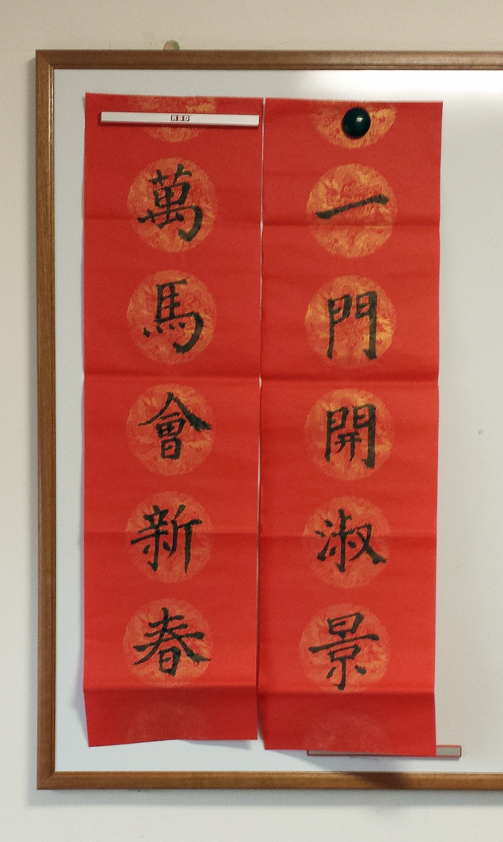 一門開淑景
萬馬會新春